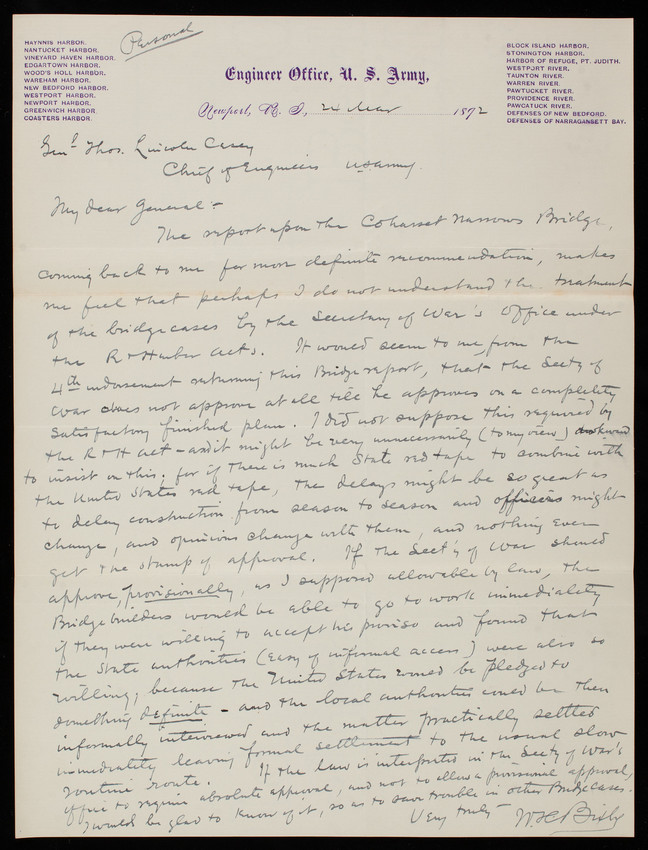 Personal
HAYNNIS HARBOR.
NANTUCKET HARBOR.
VINEYARD HAVEN HARBOR.
EDGARTOWN HARBOR.
WOOD'S HOLL HARBOR.
WAREHAM HARBOR.
NEW BEDFORD HARBOR.
WESTPORT HARBOR.
NEWPORT HARBOR.
GREENWICH HARBOR
COASTERS HARBOR.
BLOCK ISLAND HARBOR.
STONINGTON HARBOR.
HARBOR OF REFUGE, PT. JUDITH.
WESTPORT RIVER.
TAUNTON RIVER.
WARREN RIVER.
PAWTUCKET RIVER.
PROVIDENCE RIVER.
PAWCATUCK RIVER.
DEFENSES OF NEW BEDFORD.
DEFENSES OF NARRAGANSETT BAY.
Engineer Office, U. S. Army,
Newport, R. I., 24 Mar 1892
Genl Thos. Lincoln Casey
Chief of Engineers USArmy.
My dear General:-
The report upon the Cohasset Narrows Bridge,
coming back to me for more definite recommendation, makes
me feel that perhaps I do not understand the treatment
of the bridge cases by the Secretary of War's Office under
the R & Harbor Acts. It would seem to me, from the
4th indorsement returning this Bridge report, that the Secty of
War does not approve at all till he approves on a completely
satisfactory finished plan. I did not suppose this required by
the R & H Act - and it might be very unnecessarily (to my view) awkward
to insist on this; for if there is much State red tape to combine with
the United States red tape, the delays might be so great as
to delay construction from season to season and officers might
change, and opinions change with them, and nothing ever
get the stamp of approval. If the Sect'y of War should
approve, provisionally, as I supposed allowable by law, the
Bridge builders would be able to go to work immediately
if they were willing to accept the proviso and found that
the State authorities (easy of informal access) were also so
willing; because the United States would be pledged to
something definite - and the local authorities could be then
informally interviewed and the matter practically settled
immediately leaving formal settlement to the usual slow
routine route. If the law is interpreted in the Secty of War's
office to require absolute approval, and not to allow a provisional approval,
I would be glad to know of it, so as to save trouble in other Bridge cases.
Very truly
W. H. Bixby